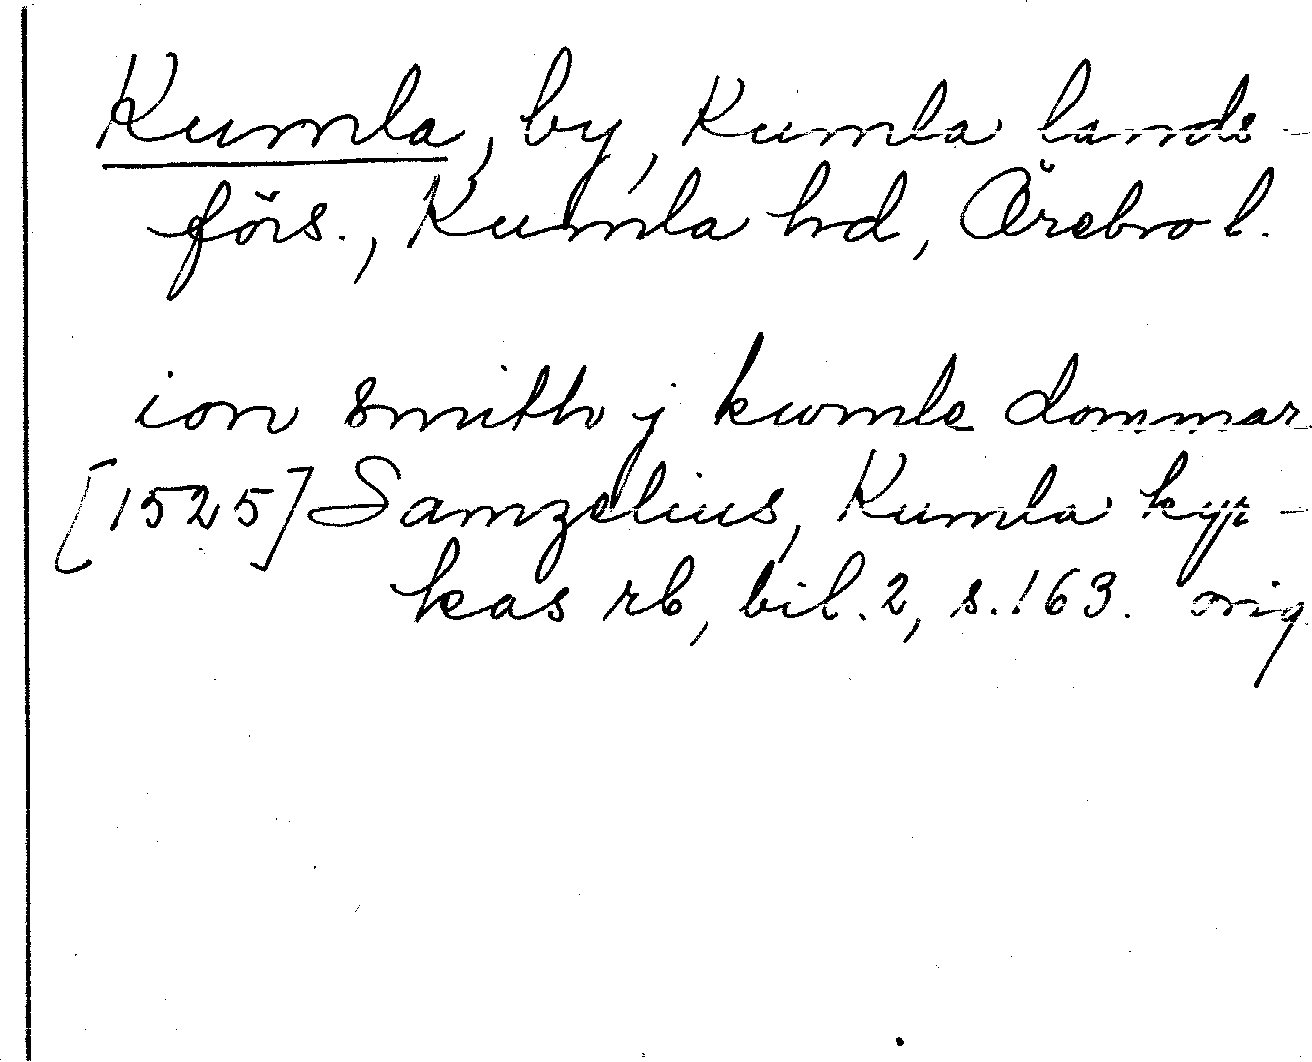 Kumla, by, Kumla lands-
förs., Kumla hd, Örebro l.
ion smith j kwmle dommar
[1525] Samzelius, Kumla kyr-
kas rb, bil. 2, s. 163. orig.